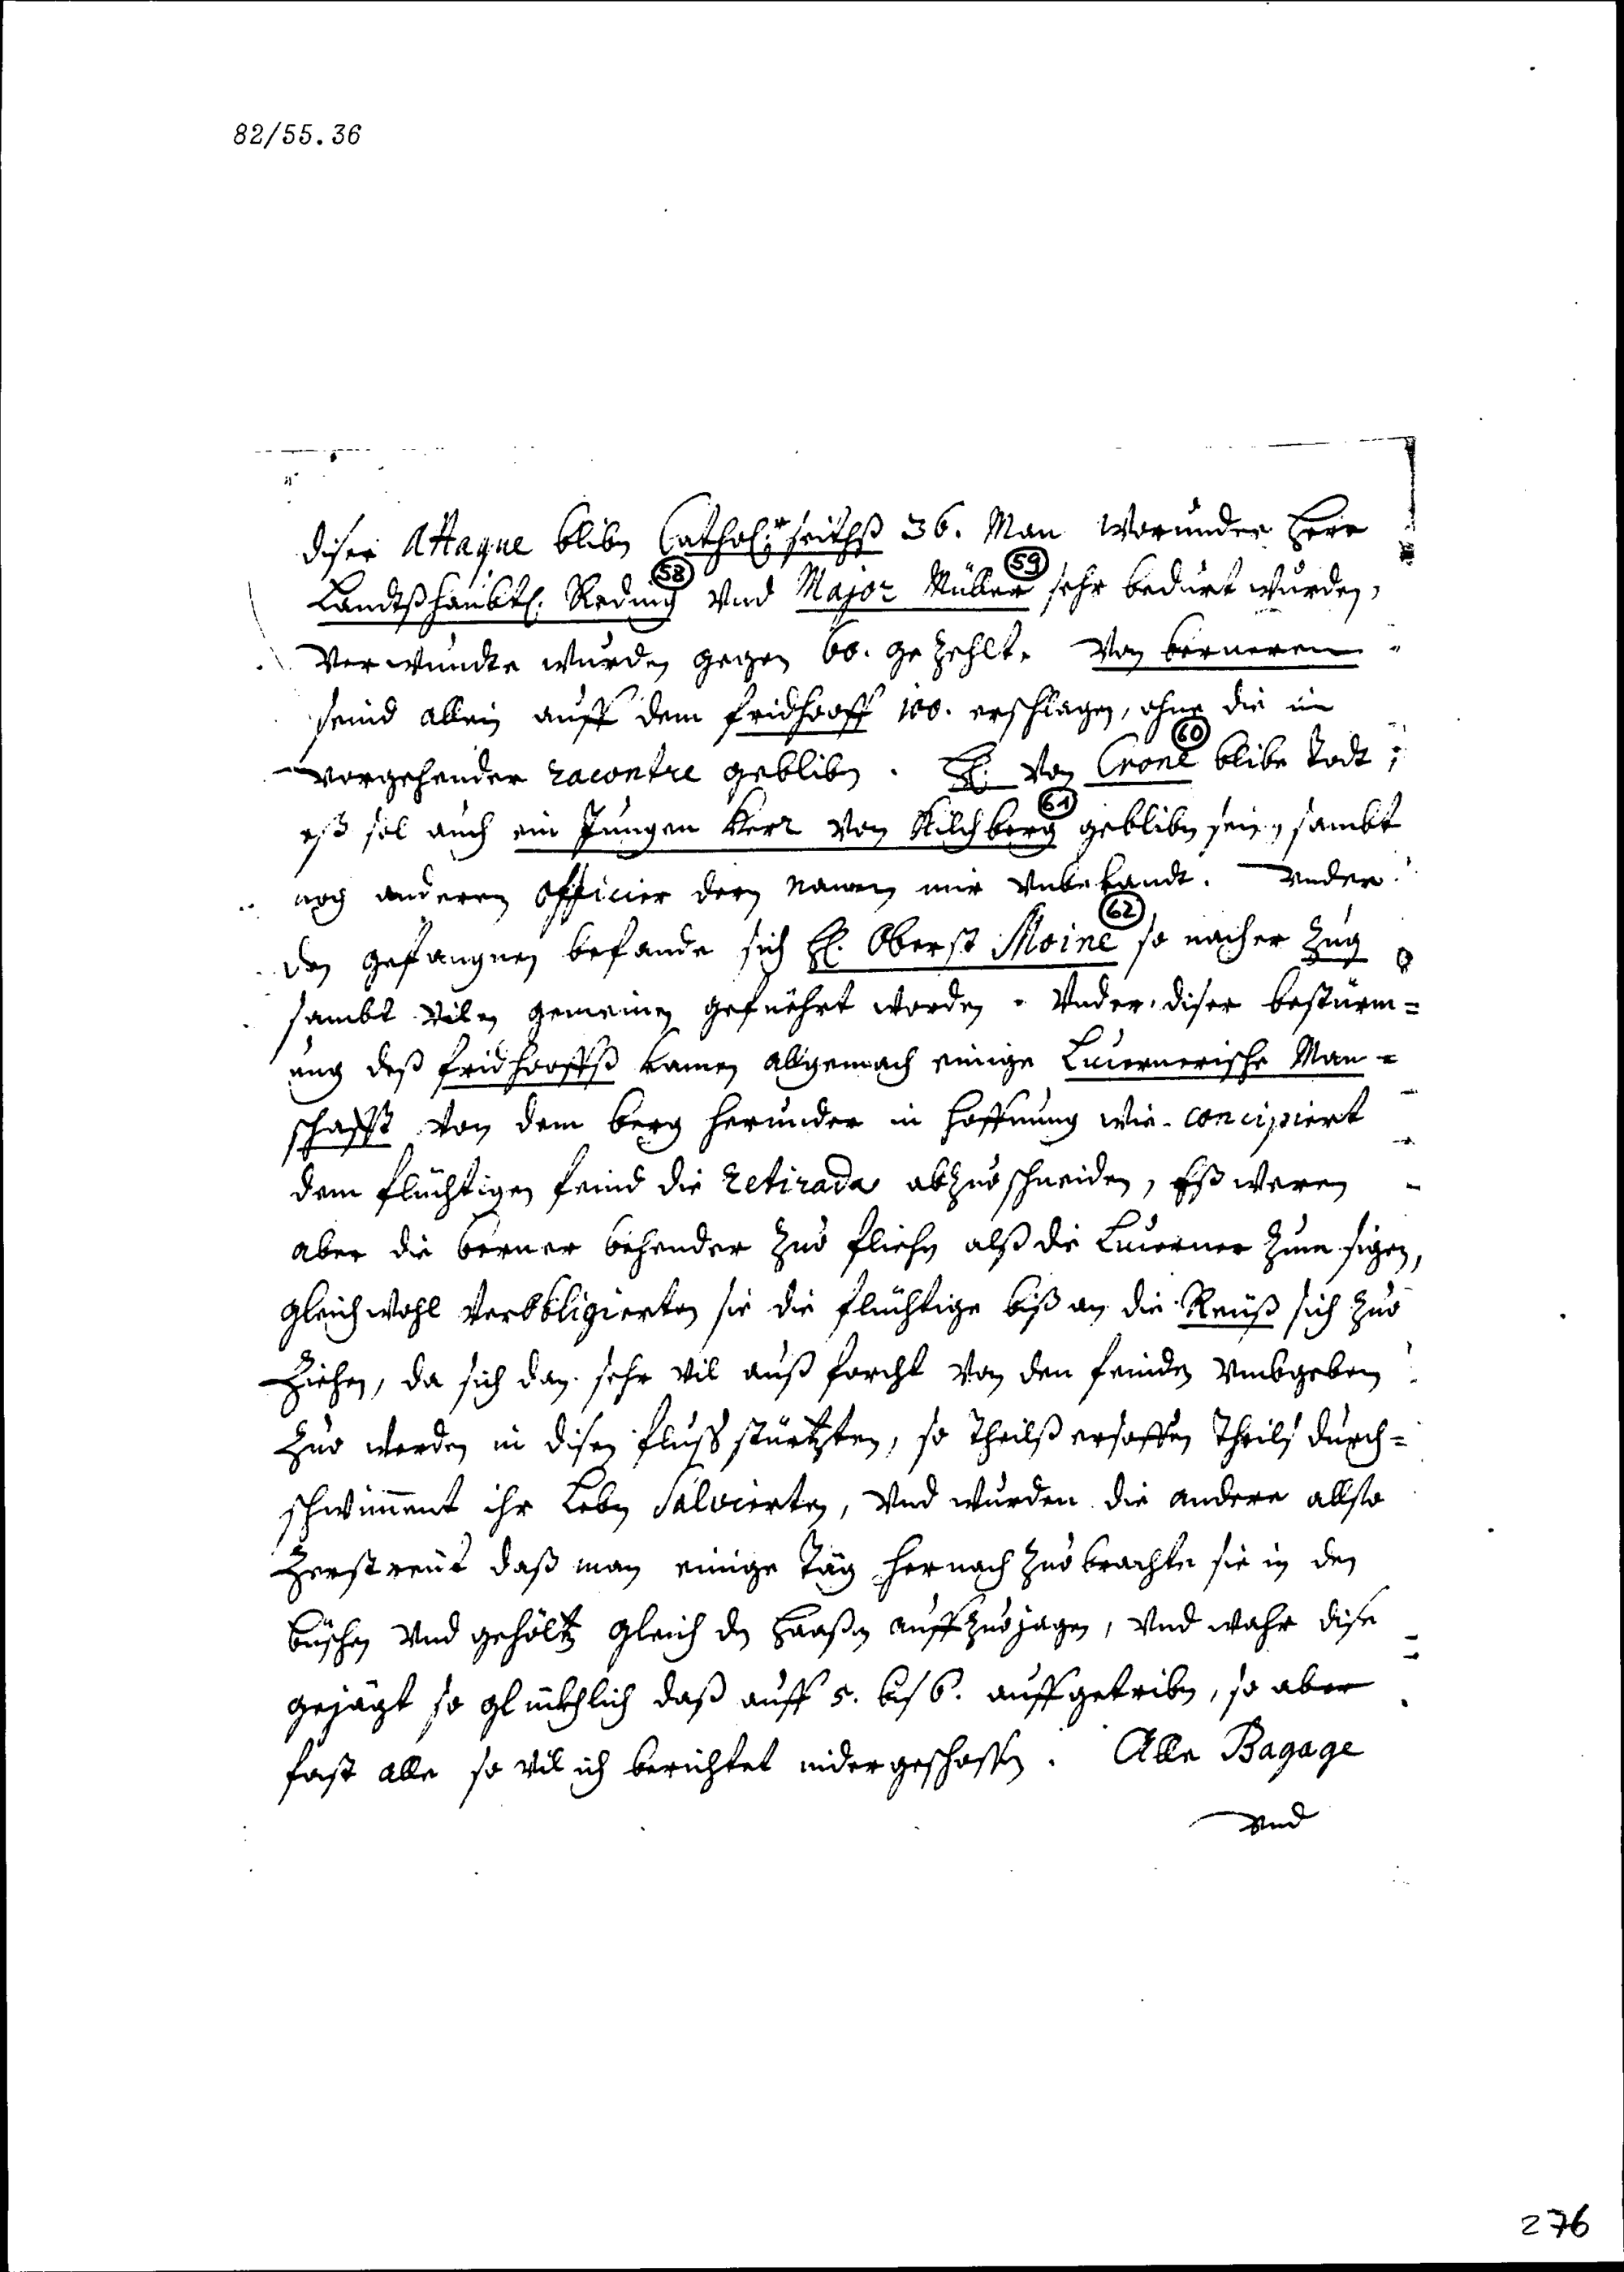 82/55.36
diser Attaque blibn Cathol: seithß 36. Man Worunder Herr
58 59
Landtßhaubtl: Reding Vnd Major Müller sehr bedurt wurden,
Verwundte wurden gegen 60. gezehlt. Von berneren
seind allein auff dem fridhooff 100. erschlagen, ohne die in
60
vorgehender racontre geblibn. H: Von Crone blibe todt;
61
eß sol auch ein Jungen Herr Von Kilchberg geblibn sein, sambt
noch anderen Officier dern namen mir Vnbekandt. Vnder
62
den gefangnen befande sich H. Oberst Moine so nacher Zug
sambt viln gemeinen gefüehrt worden. Vnder diser bestürm=
ung deß fridhooffß kamen allgemach einige Lucernerische Man=
schafft Von dem berg herunder in hoffnung wie concipiert
dem flüchtigen feind die retirada abzuoschneiden, Eß waren
aber die berner behender zuo fliehn alß die Lucerner zum sigen,
gleichwohl Verobligierten sie die flüchtige biß an die Reüß sich zuo
ziehen, da sich dan sehr vil auß forcht Von den feinden Vmbgeben
zuo werden in disen fluss stürtzten, so theilß ersoffen theils durch=
schwiment ihr Lebn Salvierten, Vnd wurden die andere allso
zerstreüt daß man einige täg hernach zuobrachte sie in den
büschen Vnd gehöltz gleich dn Haaßen auffzuojagen, Vnd wahr dise
gejägt so glückhlich daß auff 5. bis 6. auffgetribn, so aber
fast alle so vil ich berichtet nidergeschossen. Alle Bagage
Vnd
276